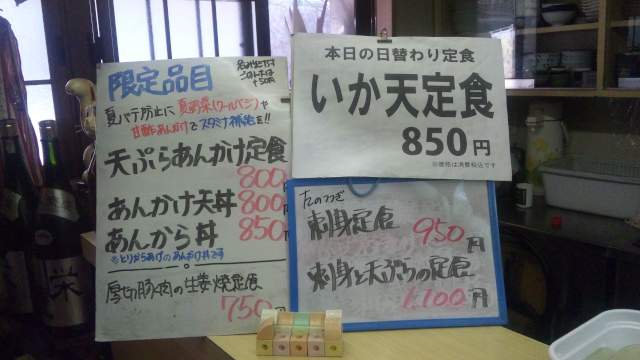 限定品目
夏バテ防止に夏野菜(クールベジ)や
甘酢あんかけでスタミナ補給を!!
天ぷらあんかけ定食
800円
あんかけ天丼 800円
あんから丼 850円
※とりからあげのあんかけ丼です
厚切豚肉の生姜焼定食
750円
本日の日替わり定食
いか天定食
850円
※価格は消費税込です
たのつぎ
刺身定食 950円
刺身と天ぷらの定食
1,100円
栄